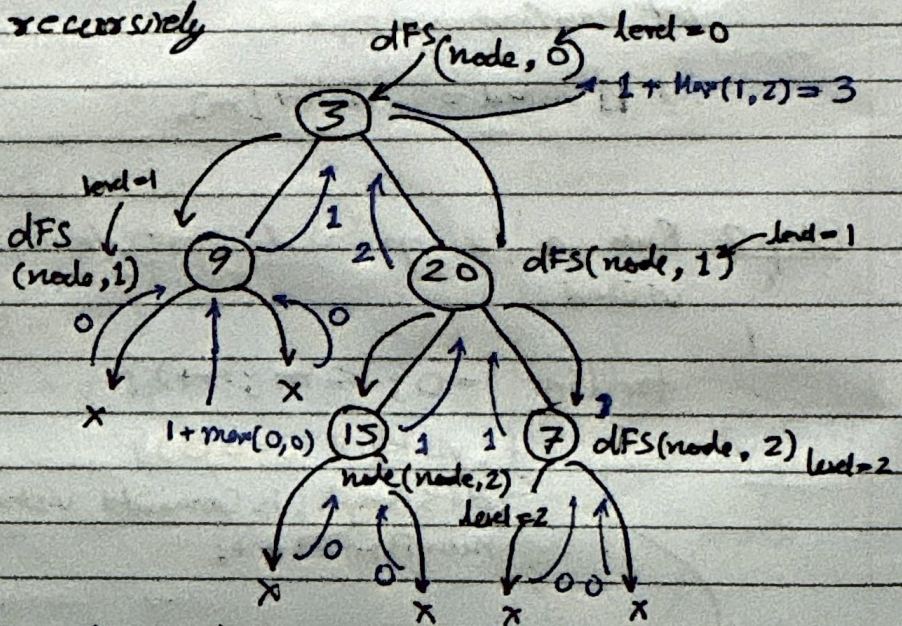 recursively
dFS
(node, 0)
level=0
1 + Max(1,2) = 3
3
level=1
1
dFS
(node,1)
9
2
20
dFS(node, 1)
level=1
0
0
x
x
1+max(0,0)
15
1
1
7
dFS(node, 2)
level=2
node(node,2)
level=2
0
0
0 0
x
x
x
x